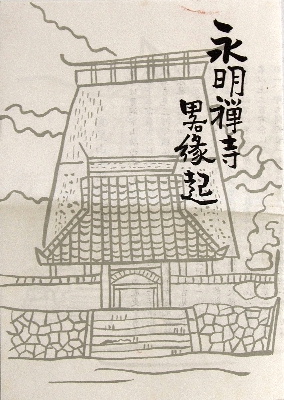 永明禅寺
畧縁起